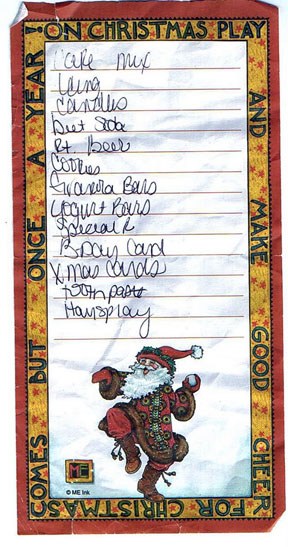 ON CHRISTMAS PLAY
AND MAKE GOOD CHEER
FOR CHRISTMAS
COMES BUT ONCE A YEAR!
Cake mix
Icing
Candles
Diet Soda
Rt. Beer
Cookies
Granola Bars
Yogurt Bars
Special K
B-Day Card
X-mas Cards
Toothpaste
Hairspray
ME
© ME Ink